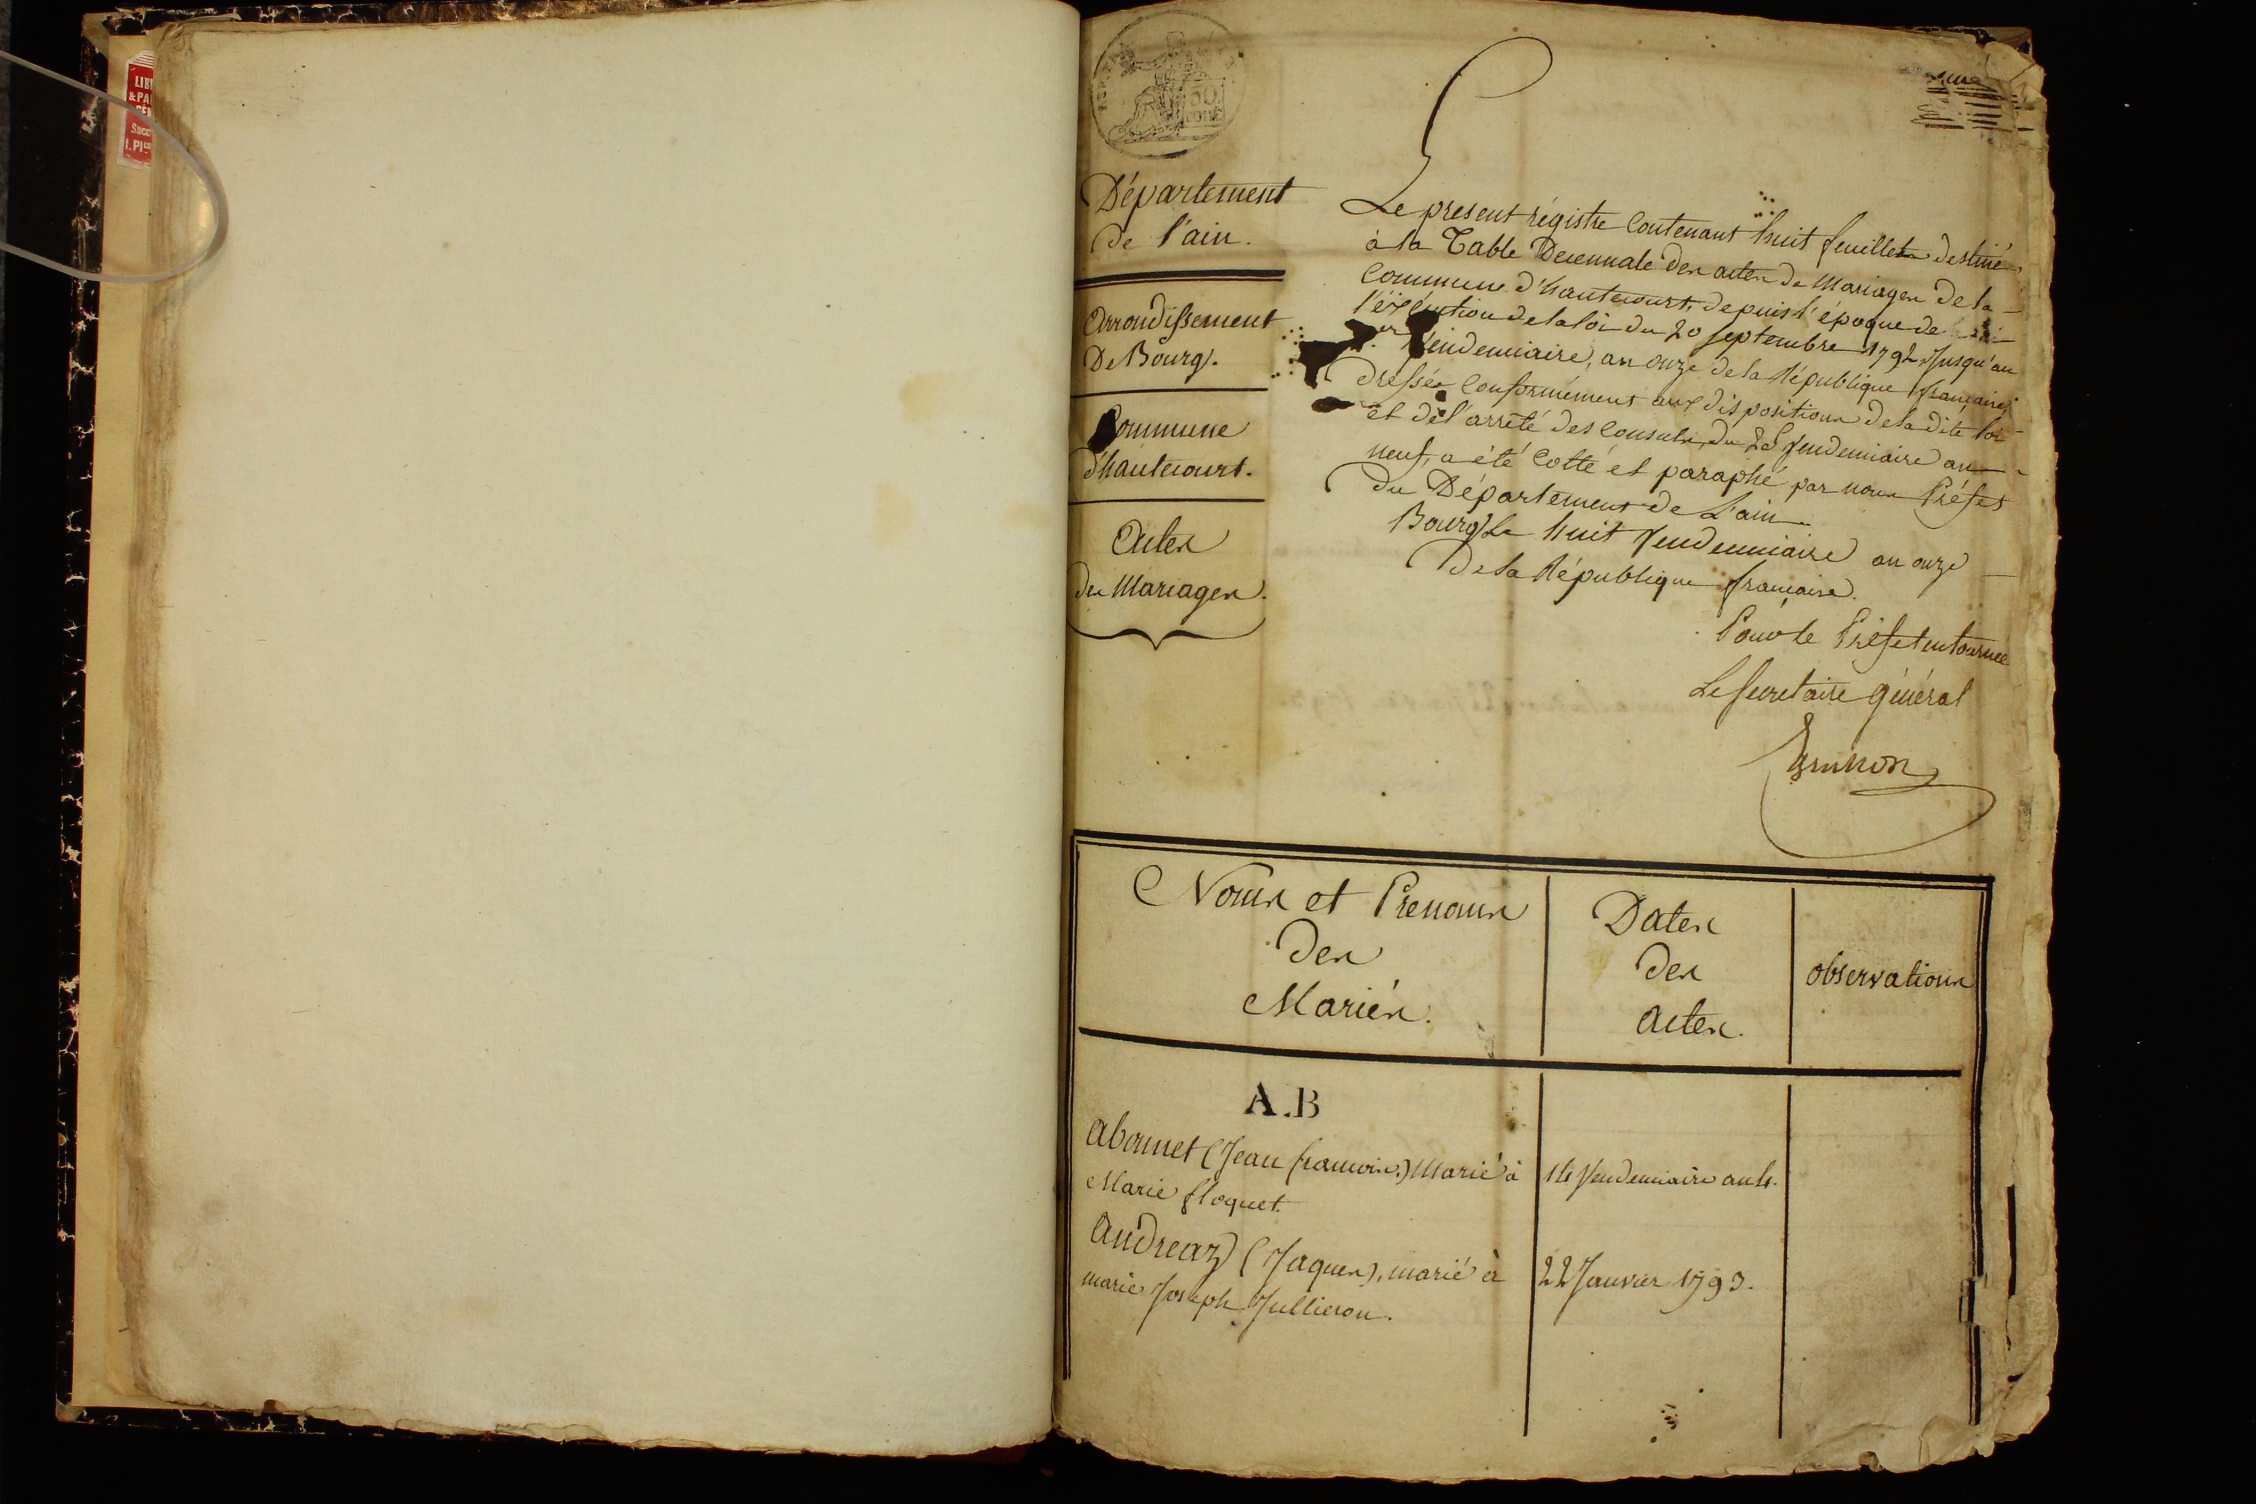 Département
de l'ain.
Arrondissement
De Bourg.
Commune
d'hautecourt.
Actes
de Mariages.
Le present régistre Contenant huit feuillets destiné
à la Table Decennale des actes de Mariages de la
Commune d'hautecourt, depuis l'époque de
l'éxécution de la loi du 20 septembre 1792 Jusqu'au
1.er Vendemiaire, an onze de la République française,
dressée Conformément aux dispositions de la dite loi
et de l'arrêté des Consuls, du 25 Vendemiaire an
neuf, a été Cotté et paraphé par nous Préfet
du Département de L'ain.
Bourg Le huit Vendemiaire an onze
De la République française.
Pour le Préfet en tournée
Le Secretaire général
Noms et Prenoms
Des
Mariés.
Dates
des
actes.
observations
A.B
Abonnet (Jean francois) Marié à
Marie floquet.
14 Vendemiaire an 4.
Andreaz (Jaques), marié à
marie Joseph Jullieron.
22 Janvier 1793.
50
LIB
& PA
Succ